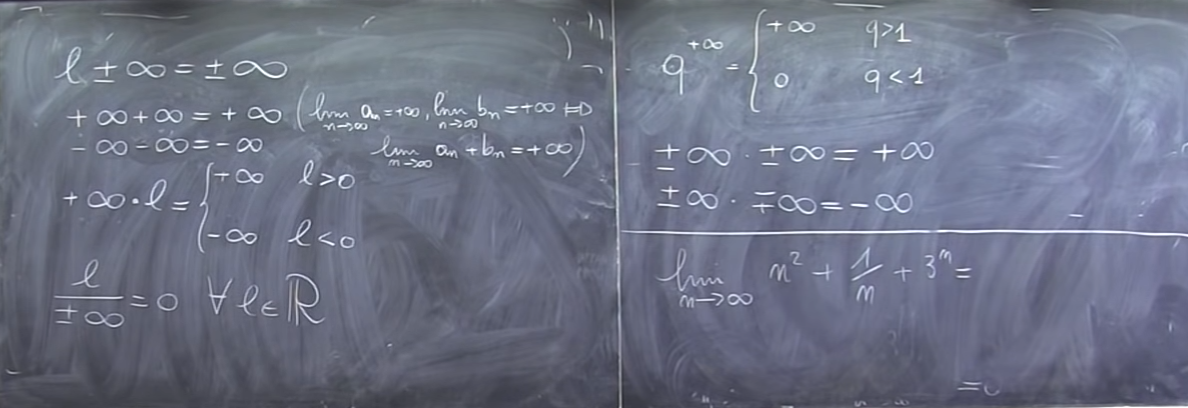 l ± ∞ = ± ∞
+ ∞ + ∞ = + ∞ ( lim n→∞ an = +∞, lim n→∞ bn = +∞ ⇒
- ∞ - ∞ = - ∞ lim n→∞ an + bn = +∞ )
+ ∞ · l = { +∞ l > 0
-∞ l < 0
l / ±∞ = 0 ∀ l ∈ ℝ
q^+∞ = { +∞ q>1
0 q<1
± ∞ · ± ∞ = + ∞
± ∞ · ∓ ∞ = - ∞
lim n→∞ n² + 1/n + 3ⁿ =